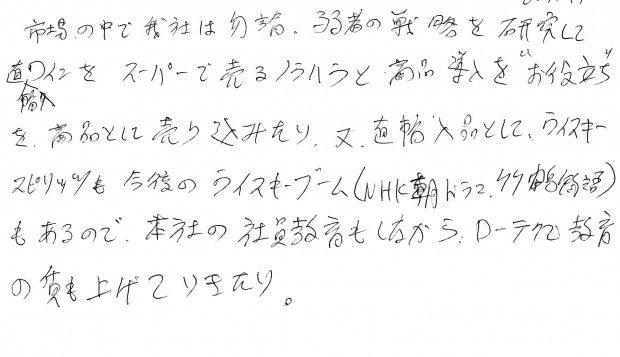 市場の中で我社は勿論、弱者の戦略を研究して
直輸入ワインをスーパーで売るノウハウと商品導入を"お役立ち"
を商品として売り込みたい。又、直輸入品として、ウイスキー
スピリッツも今後のウイスキーブーム(NHK朝ドラで、
もあるので、本社の社員教育もしながら、ローテクで教育
の質も上げていきたい。